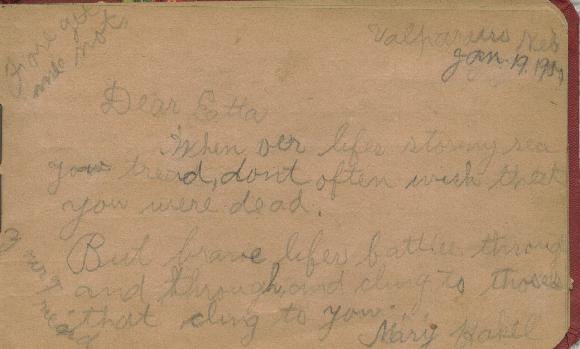 Forget
me not
Valparaiso Neb
Jan. 19, 19
Dear Etta
When oer lifes stormy sea
you tread, dont often wish that
you were dead.
But brave lifes battle throug
and through, and cling to those
that cling to you.
Mary